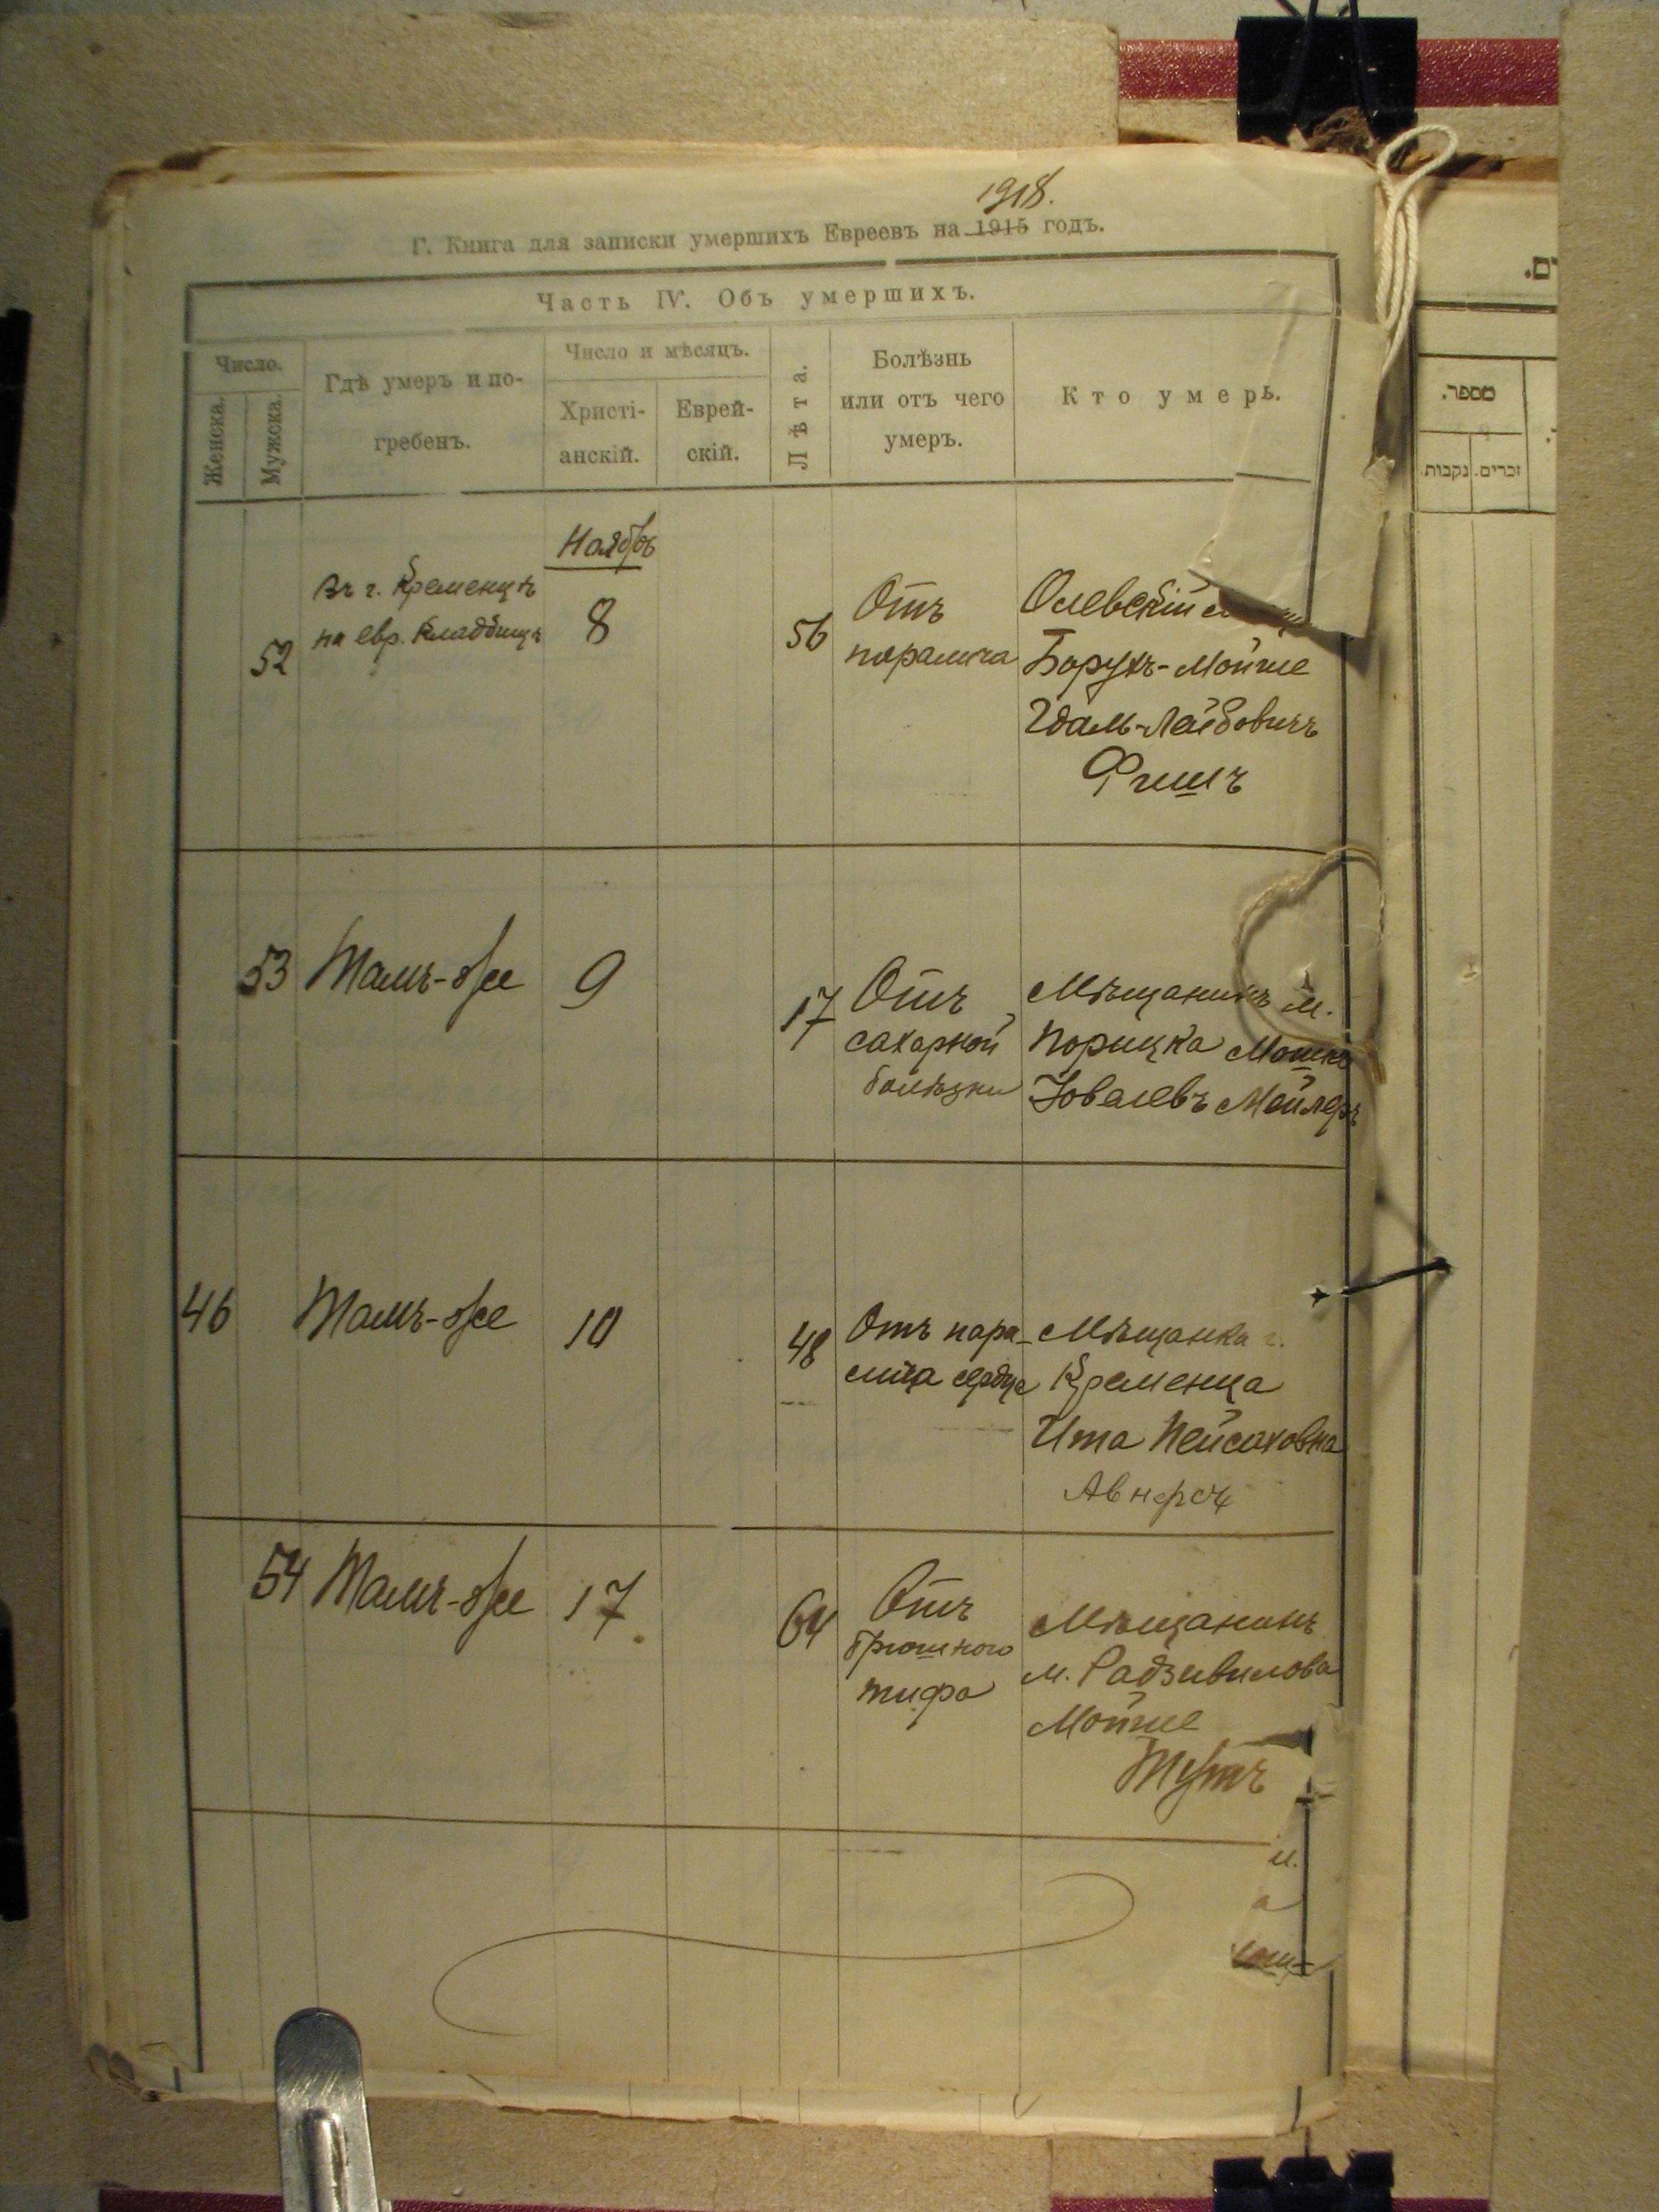 1918.
Г. Книга для записки умершихъ Евреевъ на 1915 годъ.
Часть IV. Объ умершихъ.
Число.
Женска.
Мужска.
Гдѣ умеръ и по-
гребенъ.
Число и мѣсяцъ.
Христі-
анскій.
Еврей-
скій.
Лѣта.
Болѣзнь
или отъ чего
умеръ.
Кто умеръ.
מספר.
נקבות.
זכרים.
Ноябрь
52
Въ г. Кременцѣ
на евр. кладбищѣ
8
56
Отъ
паралича
Олевскій
Борухъ-Мойше
Гдаль-Лейбовичъ
Фишъ
53
Тамъ-же
9
17
Отъ
сахарной
болѣзни
Мѣщанинъ м.
Порицка Мошко
Ховелевъ Мейлеръ
46
Тамъ-же
10
48
Отъ пара-
лича сердца
Мѣщанка г.
Кременца
Ита Пейсаховна
54
Тамъ-же
17
64
Отъ
брюшного
тифа
Мѣщанинъ
м. Радзивилова
Мойше